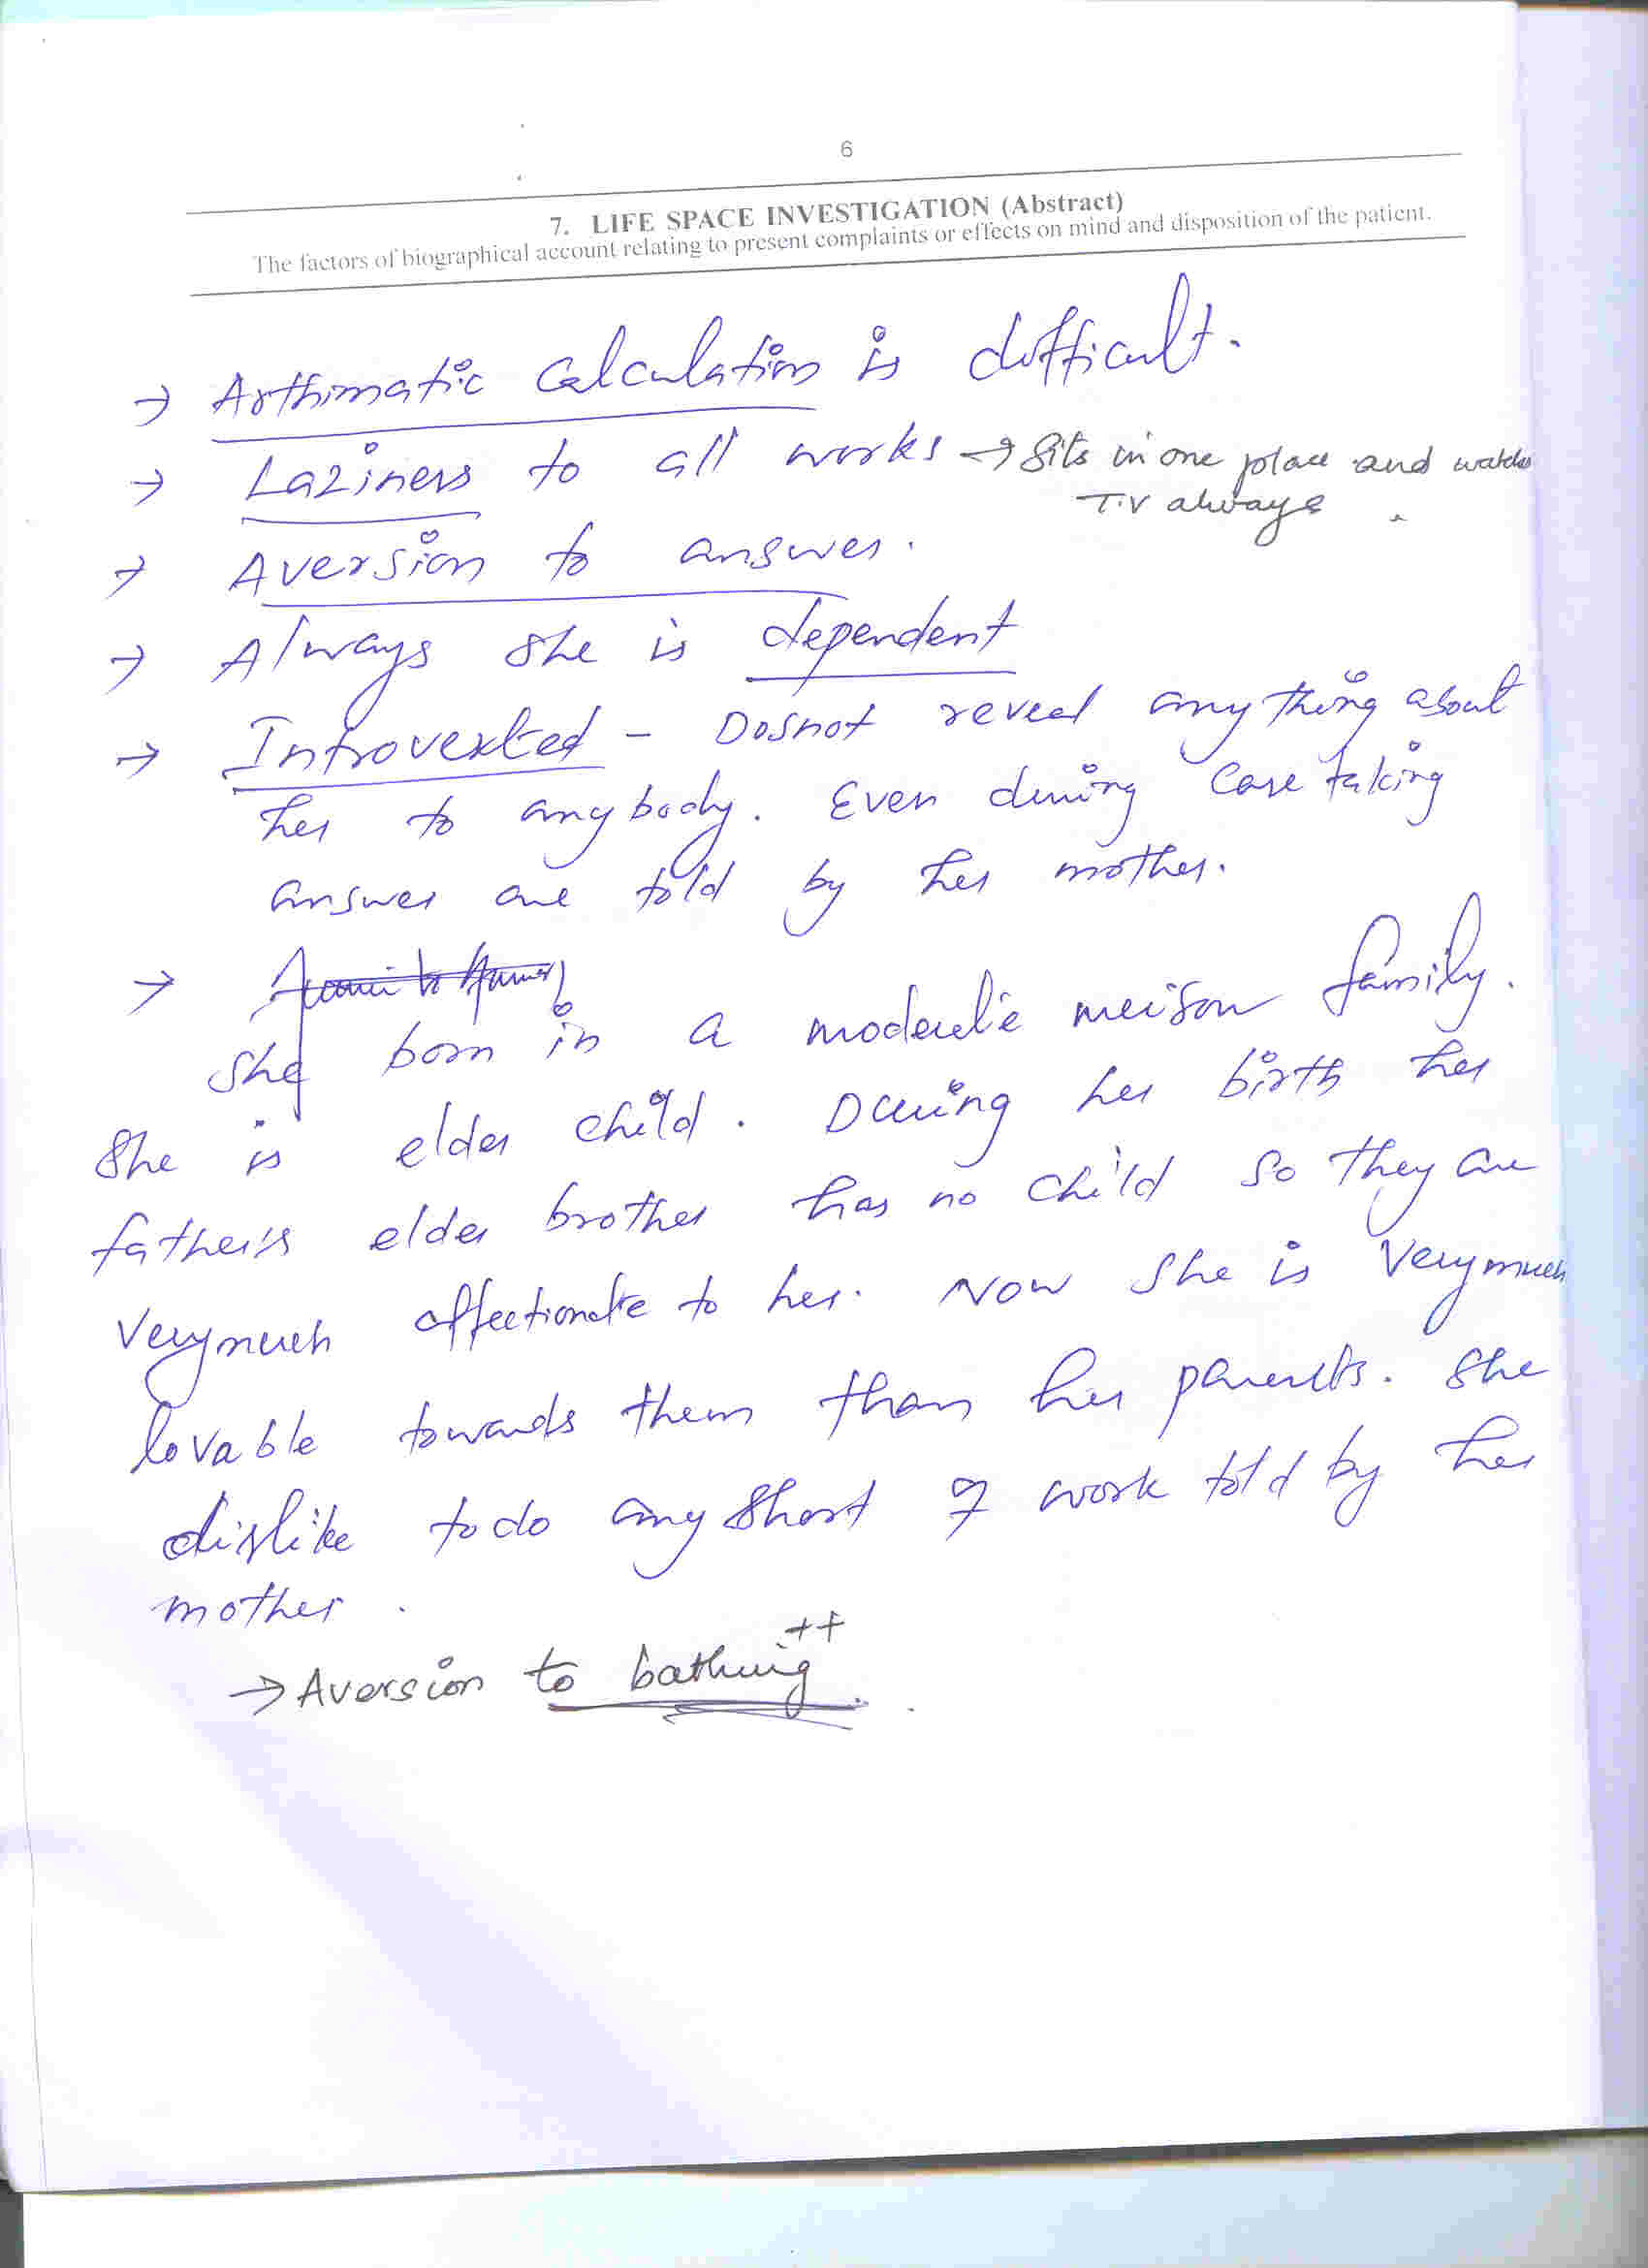 6
7. LIFE SPACE INVESTIGATION (Abstract)
The factors of biographical account relating to present complaints or effects on mind and disposition of the patient.
→ Arthimatic Calculation is difficult.
→ Laziness to all works → Sits in one place and watches
T.V always.
→ Aversion to answer.
→ Always she is dependent
→ Introverted - Dosnot reveal anything about
her to anybody. Even during Case taking
answer are told by her mother.
→
She born in a moderate family.
She is elder child. During her birth her
father's elder brother has no child so they are
Verymuch affectionate to her. Now she is Verymuch
lovable towards them than her parents. She
dislike to do any short of work told by her
mother.
→ Aversion to bathing ++.